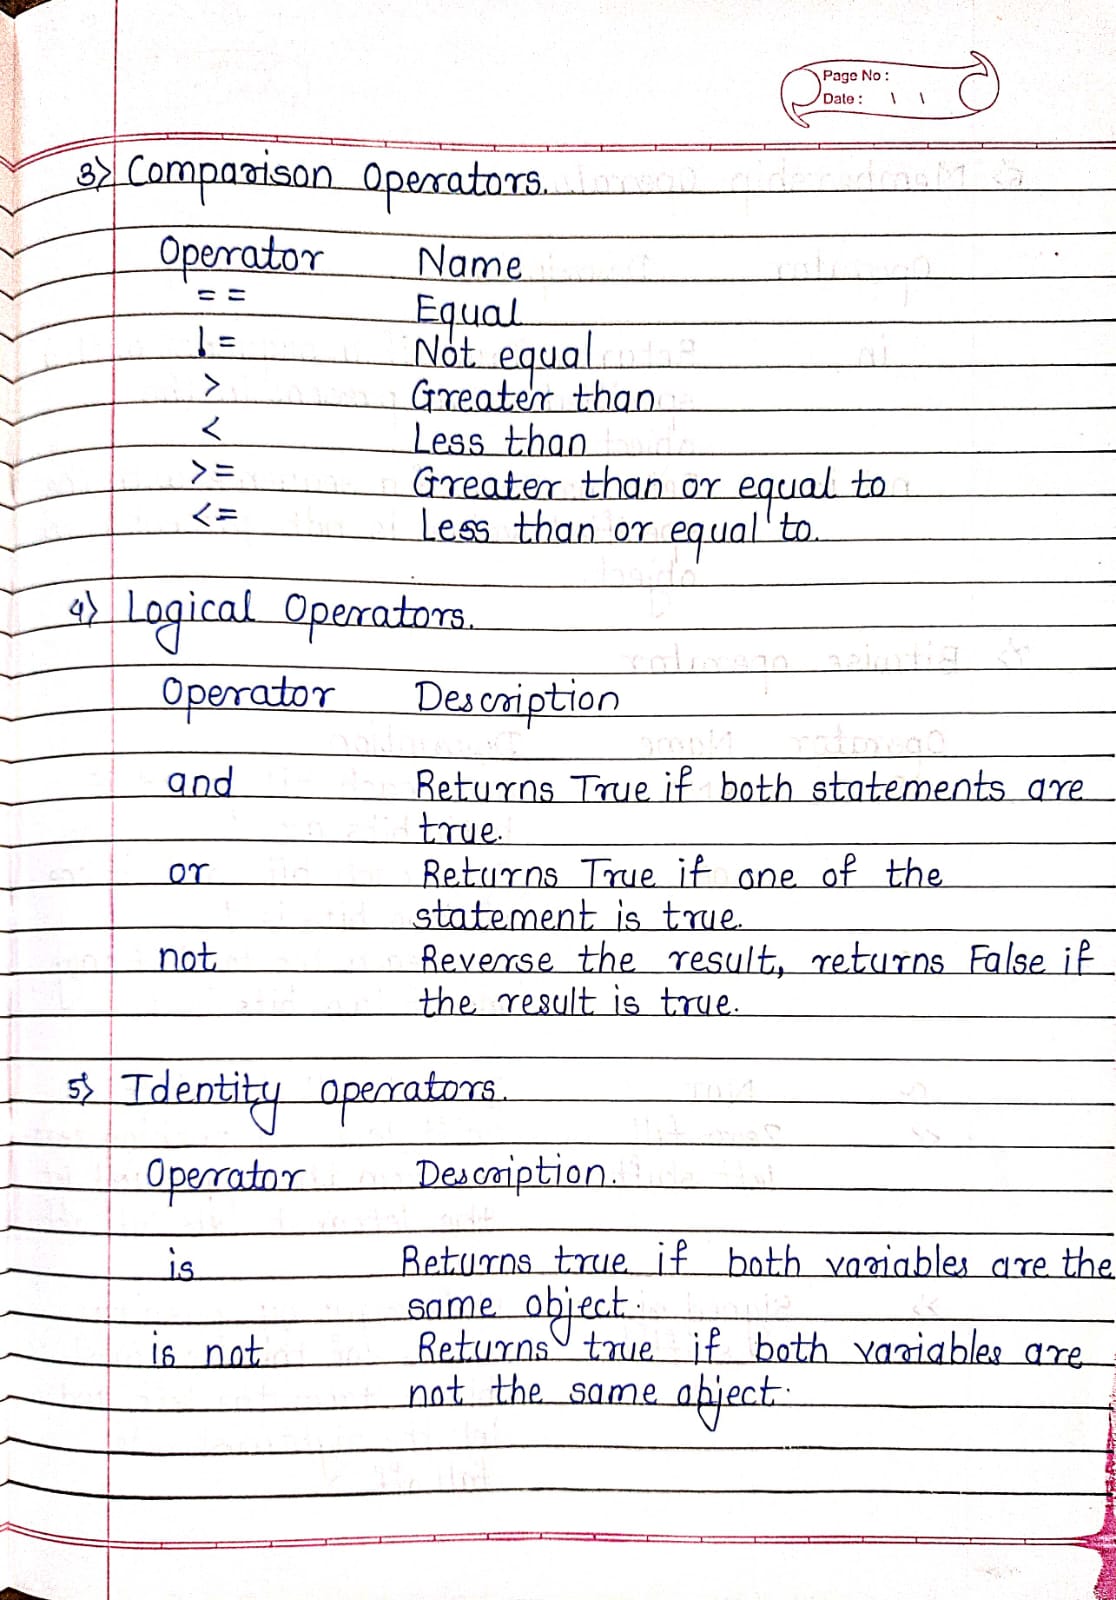 Page No :
Date : \ \
3) Comparison Operators.
Operator Name
== Equal
!= Not equal
> Greater than
< Less than
>= Greater than or equal to
<= Less than or equal to.
4) Logical Operators.
Operator Description
and Returns True if both statements are
true.
or Returns True if one of the
statement is true.
not Reverse the result, returns False if
the result is true.
5) Identity operators.
Operator Description.
is Returns true if both variables are the
same object.
is not Returns true if both variables are
not the same object.